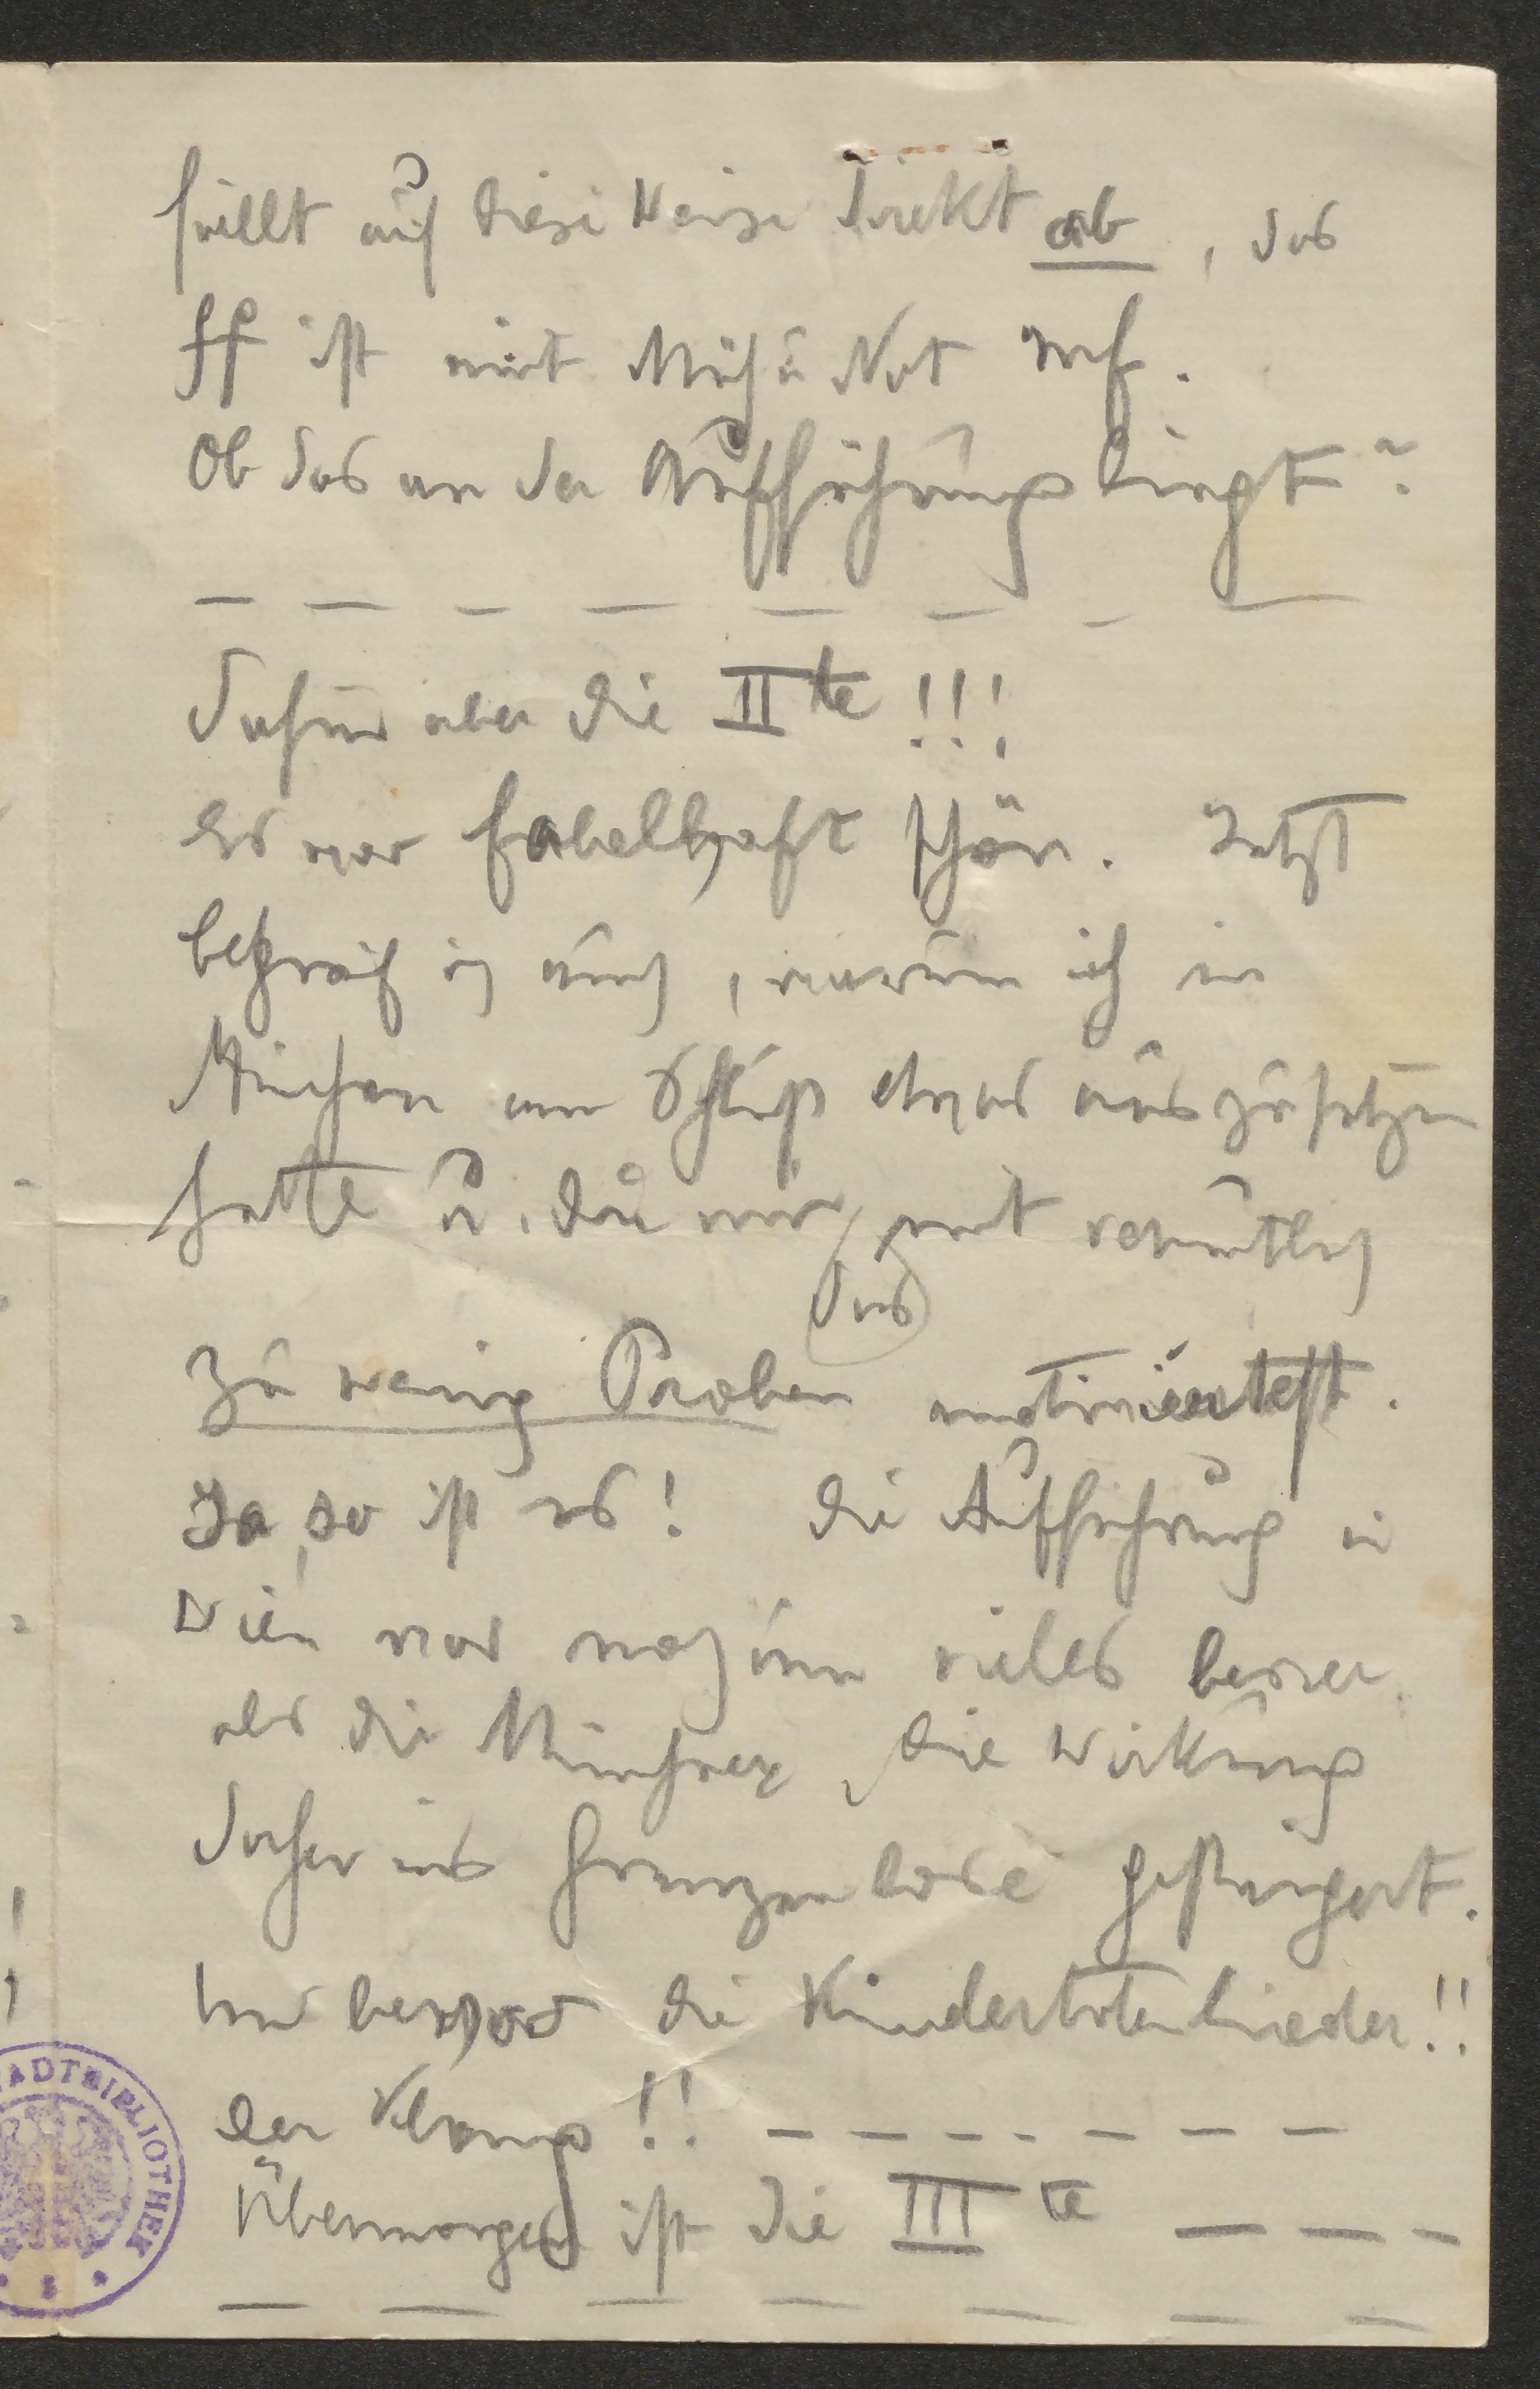 fällt auf diese Weise direkt ab, das
ff ist mit Müh u Not mf.
Ob das an der Aufführung liegt?
— — — — — — — —
Dafür aber die IIte!!!
Es war fabelhaft schön. Jetzt
begreif ich auch, warum ich in
München am Schluß etwas auszusetzen
hatte u. du mir das mit vermutlich
zu wenig Proben motiviertest.
Ja, so ist es! Die Aufführung in
Wien war noch um vieles besser
als die Münchner, die Wirkung
daher ins Grenzenlose gesteigert.
Und bevor die Kindertotenlieder!!
Der Klang!! — — — — — — —
Übermorgen ist die IIIte — — —
— — — — — — —
STADTBIBLIOTHEK